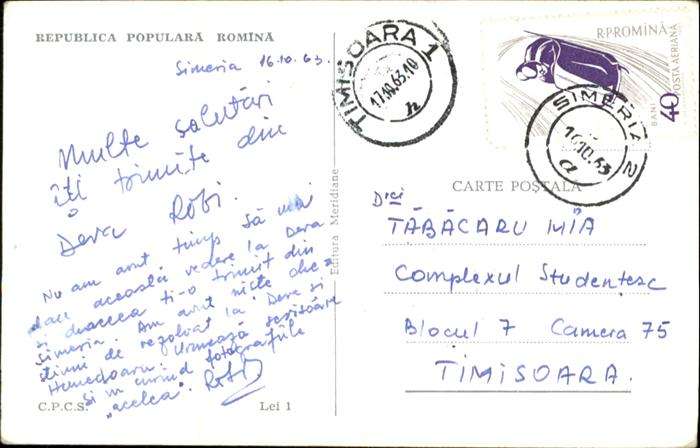 REPUBLICA POPULARĂ ROMÎNĂ
Simeria 16.10.63.
Multe salutări
îți trimite din
Deva Robi.
Nu am avut timp să mai
dau această vedere la Deva
și deaceea ți-o trimit din
Simeria. Am avut niște che-
stiuni de rezolvat la Deva și
Hunedoara. Urmează scrisoare
și în curînd fotografiile
"acelea". Robi
C.P.C.S. Lei 1
Editura Meridiane
TIMIȘOARA 1
17.10.63.10
R.P.ROMÎNĂ
POSTA AERIANA
40 BANI
SIMERIA 2
16.10.63
CARTE POȘTALĂ
D-rei
TĂBĂCARU MIA
Complexul Studențesc
Blocul 7 Camera 75
TIMISOARA.